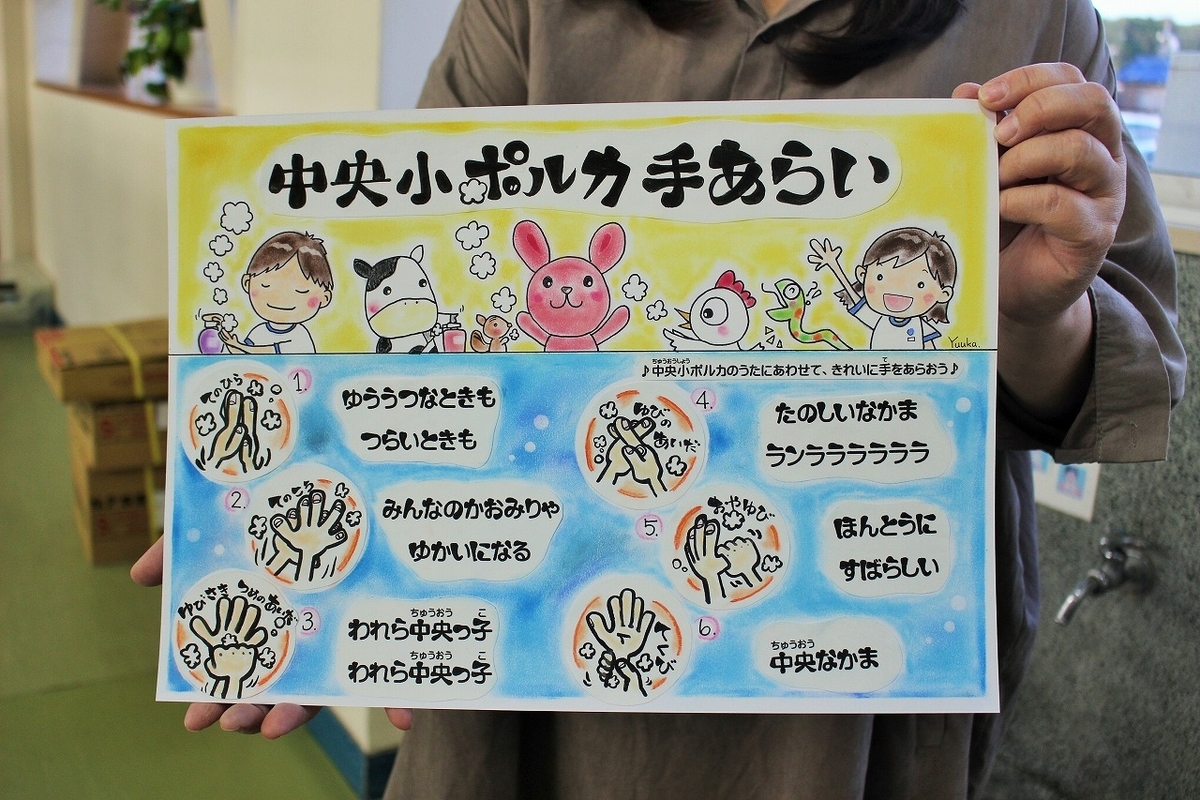 中央小ポルカ手あらい
Yuuka.
♪中央小ポルカのうたにあわせて、きれいに手をあらおう♪
ちゅうおうしょう
て
てのひら
1.
ゆううつなときも
つらいときも
2.
てのひら
みんなのかおみりゃ
ゆかいになる
ゆびさき
つめのあいだ
3.
ちゅうおう
こ
われら中央っ子
ちゅうおう
こ
われら中央っ子
4.
ゆびの
あいだ
たのしいなかま
ランララララララ
5.
おやゆび
ほんとうに
すばらしい
6.
てくび
ちゅうおう
中央なかま